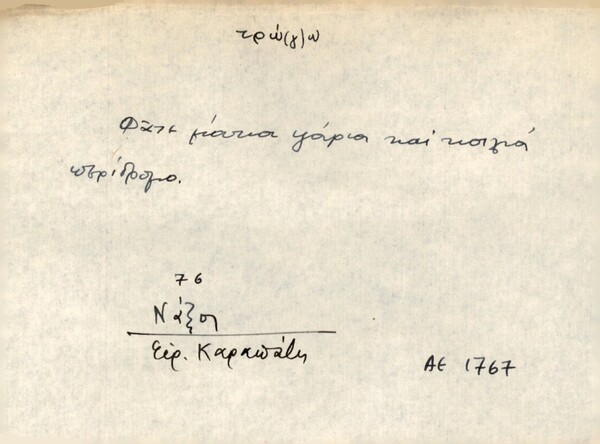 τρώ(γ)ω
Φάτε μάτια ψάρια και κοιλιά
περίδρομο.
76
Νάξος
Ειρ. Καραπάτη
ΑΕ 1767